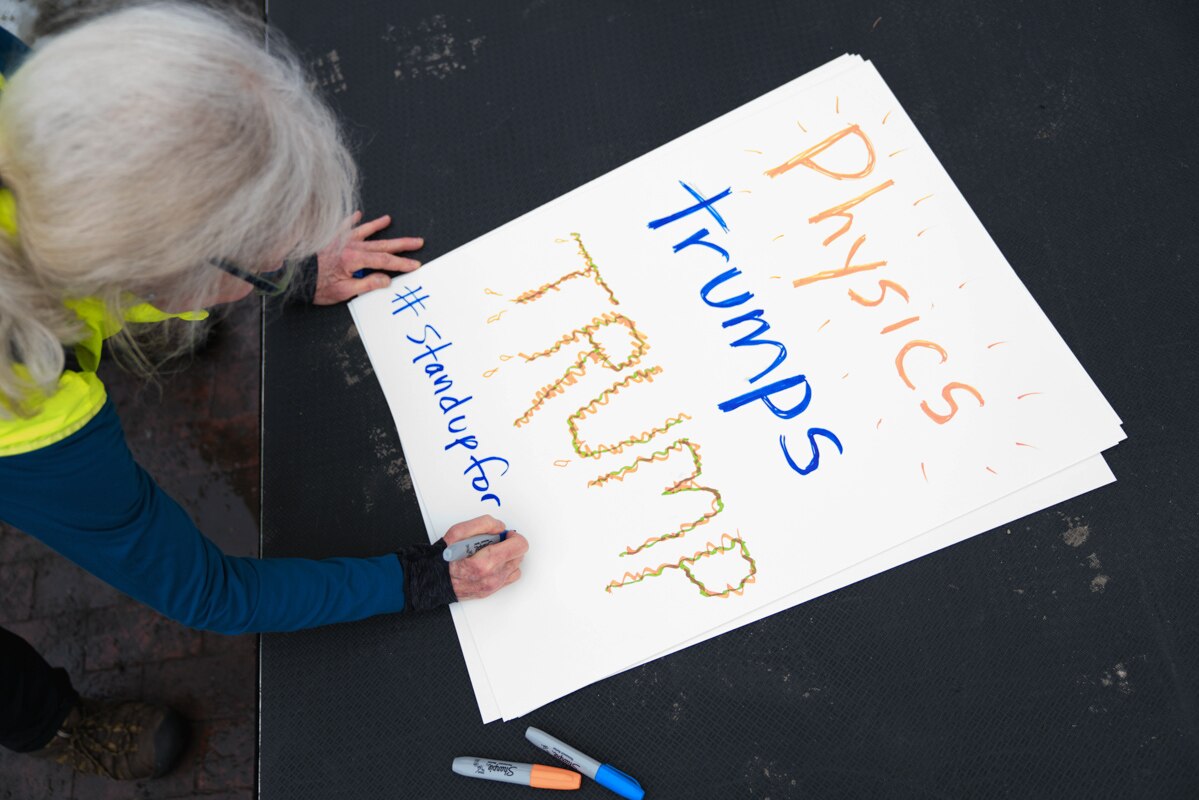 Physics
trumps
TRUMP
#Standupfor
Sharpie
Sharpie